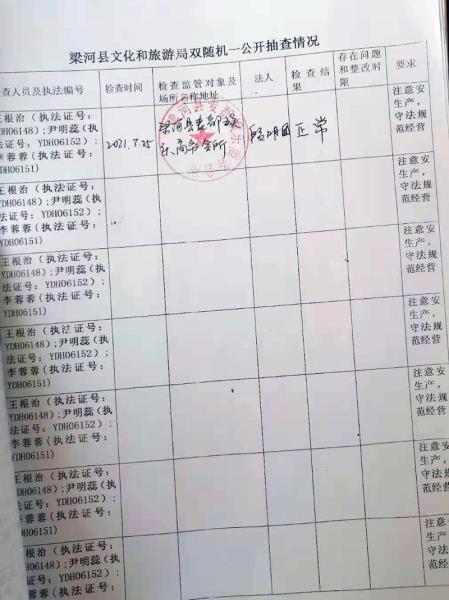 梁河县文化和旅游局双随机一公开抽查情况
查人员及执法编号 检查时间 检查监管对象及场所名称地址 法人 检查结果 存在问题和整改时限 要求
王根治（执法证号：
YDH06148）；尹明蕊（执
法证号：YDH06152）；
李蓉蓉（执法证号：
YDH06151）
2021.7.25
梁河县
商务会所
正常
注意安
生产，
守法规
范经营
王根治（执法证号：
YDH06148）；尹明蕊（执
法证号：YDH06152）；
李蓉蓉（执法证号：
YDH06151）
注意安
生产，
守法规
范经营
王根治（执法证号：
DH06148）；尹明蕊（执
法证号：YDH06152）；
李蓉蓉（执法证号：
DH06151）
注意安
生产，
守法规
范经营
王根治（执法证号：
DH06148）；尹明蕊（执
法证号：YDH06152）；
李蓉蓉（执法证号：
DH06151）
注意安
生产，
守法规
范经营
王根治（执法证号：
DH06148）；尹明蕊（执
法证号：YDH06152）；
李蓉蓉（执法证号：
DH06151）
注意安
生产，
守法规
范经营
王根治（执法证号：
DH06148）；尹明蕊（执
证号：YDH06152）；
蓉蓉（执法证号：
DH06151）
注意安
生产，
守法规
范经营
王根治（执法证号：
DH06148）；尹明蕊（执
证号：YDH06152）；
蓉蓉（执法证号：
注意安
生产，
守法
范经